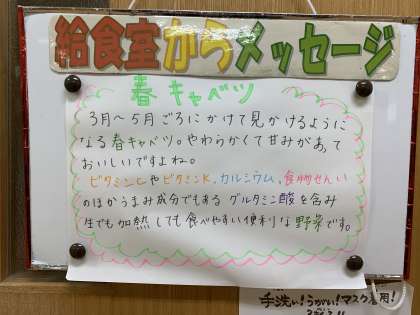 給食室からメッセージ
春キャベツ
3月～5月ごろにかけて見かけるように
なる春キャベツ。やわらかくて甘みがあって
おいしいですよね。
ビタミンCやビタミンK、カルシウム、食物せんい
のほかうまみ成分でもあるグルタミン酸を含み
生でも加熱しても食べやすい便利な野菜です。
手洗い!うがい!マスク着用!